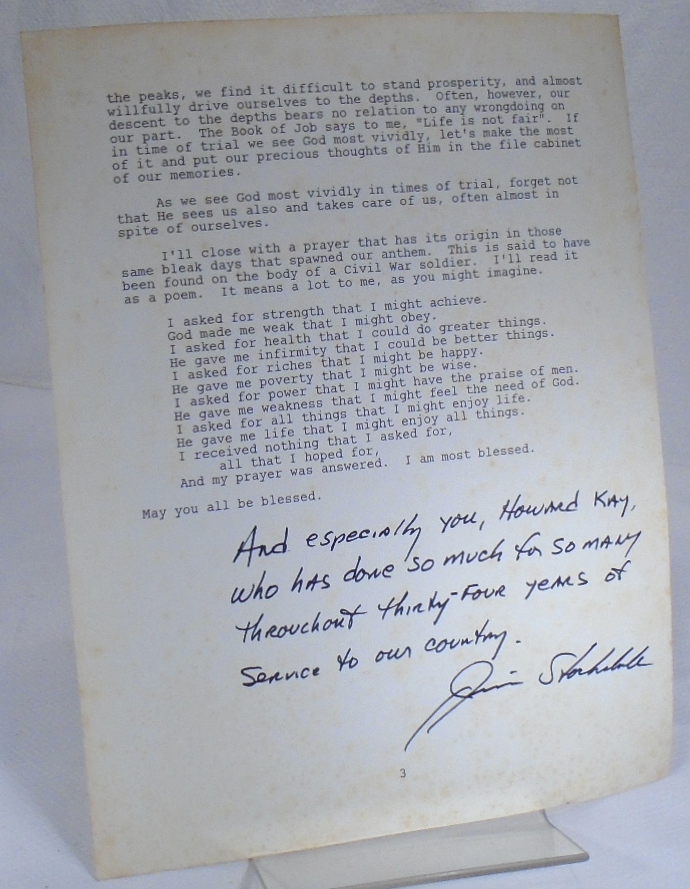 the peaks, we find it difficult to stand prosperity, and almost
willfully drive ourselves to the depths.  Often, however, our
descent to the depths bears no relation to any wrongdoing on
our part.  The Book of Job says to me, "Life is not fair".  If
in time of trial we see God most vividly, let's make the most
of it and put our precious thoughts of Him in the file cabinet
of our memories.
As we see God most vividly in times of trial, forget not
that He sees us also and takes care of us, often almost in
spite of ourselves.
I'll close with a prayer that has its origin in those
same bleak days that spawned our anthem.  This is said to have
been found on the body of a Civil War soldier.  I'll read it
as a poem.  It means a lot to me, as you might imagine.
I asked for strength that I might achieve.
God made me weak that I might obey.
I asked for health that I could do greater things.
He gave me infirmity that I could be better things.
I asked for riches that I might be happy.
He gave me poverty that I might be wise.
I asked for power that I might have the praise of men.
He gave me weakness that I might feel the need of God.
I asked for all things that I might enjoy life.
He gave me life that I might enjoy all things.
I received nothing that I asked for,
all that I hoped for,
And my prayer was answered.  I am most blessed.
May you all be blessed.
And especially you, Howard Kay,
who has done so much for so many
throughout thirty-four years of
service to our country.
Jim Stockdale
3